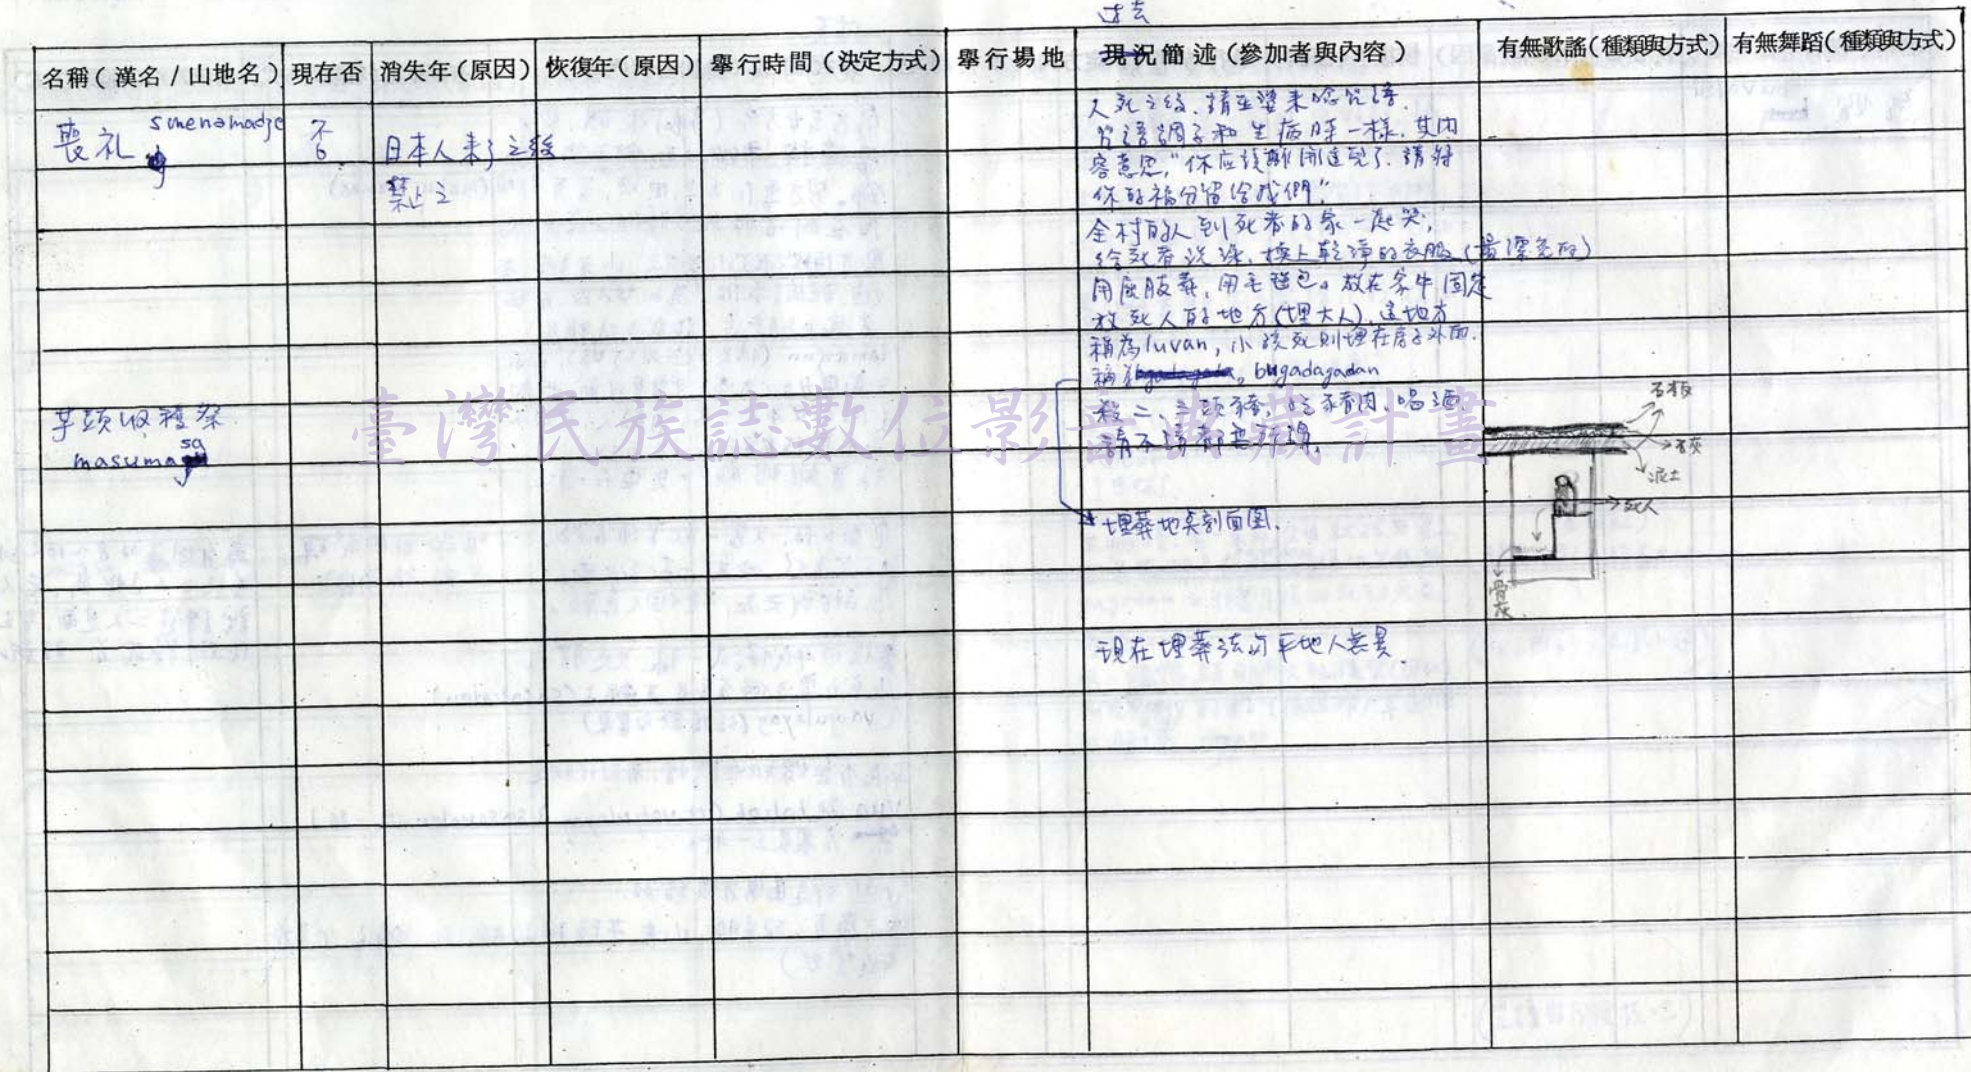 過去
名稱(漢名/山地名) 現存否 消失年(原因) 恢復年(原因) 舉行時間(決定方式) 舉行場地 現況簡述(參加者與內容) 有無歌謠(種類與方式) 有無舞蹈(種類與方式)
喪礼 smenamadje
否
日本人来了之後
禁止之
人死之後,請巫婆来唸咒語.
咒語調子和生病時一樣,其内
容意思,"你应該離開這兒了,請將
你的福分留给我們".
全村的人到死者的家一起哭,
給死者洗澡,換上乾淨的衣服(最漂亮的)
用屈肢葬,用毛毯包。放在家中固定
放死人的地方(埋大人),這地方
稱為luvan,小孩死則埋在房子外面.
稱 bugadagadan
殺二、三頭豬,吃豬肉,喝酒
埋葬地点剖面圖.
石板
泥土
死人
骨灰
現在埋葬法与平地人無異.
芋頭收穫祭
masumasa
臺灣民族誌數位影音典藏計畫